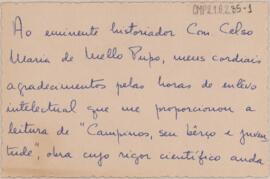 CMP2.1.8.2.35-1
Ao eminente historiador Con. Celso
Maria de Mello Pupo, meus cordiais
agradecimentos pelas horas de enlevo
intelectual que me proporcionou a
leitura de "Campinas, seu bêrço e juven
tude", obra cujo rigor científico anda